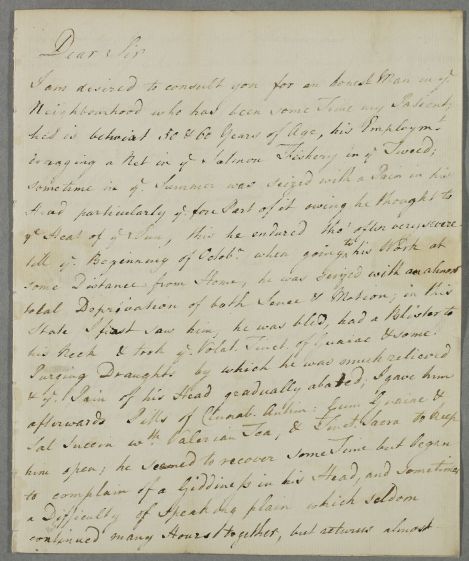 Dear Sir
I am desired to consult you for an honest Man in yᵉ
Neighbourhood who has been some Time my Patient;
he is betwixt 50 & 60 Years of Age, his Employmᵗ
dragging a Net in yᵉ Salmon Fishery in yᵉ Tweed;
sometime in yᵉ Summer was seized with a Pain in his
Head particularly yᵉ fore Part of it owing he thought to
yᵉ Heat of yᵉ Sun, this he endured tho' often very severe
till yᵉ Beginning of Octobʳ when going to his Work at
some Distance from Home, he was seized with an almost
total Deprivation of both Sense & Motion; in this
State I first saw him, he was bled, had a Blister to
his Neck & took yᵉ Volat. Tinct of Guaiac & some
Purging Draughts by which he was much relieved
& yᵉ Pain of his Head gradually abated; I gave him
afterwards Pills of Cinnab. Antim: Gum Guaiac &
Sal Succin wᵗʰ Valerian Tea, & Tinct. Sacra to keep
him open; he seemed to recover some Time but began
to complain of a Giddiness in his Head, and sometimes
a Difficulty of speaking plain which seldom
continued many Hours together, but returns almost